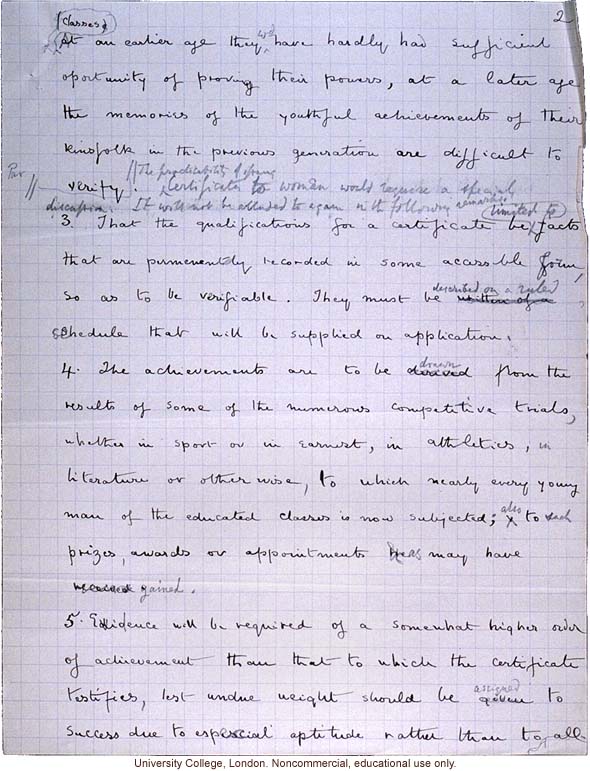 2
(classes)
At an earlier age they wd have hardly had sufficient
oportunity of proving their powers, at a later age
the memories of the youthful achievements of their
kinsfolk in the previous generation are difficult to
verify. // The practicability of giving
Par // Certificates to women would require a special
discussion. It will not be alluded to again in the following remarks
limited to
3. That the qualifications for a certificate be facts
that are permenently recorded in some accessible form,
described on a ruled
so as to be verifiable. They must be written of a
schedule that will be supplied on application.
drawn
4. The achievements are to be derived from the
results of some of the numerous competitive trials,
whether in sport or in earnest, in athletics, in
literature or otherwise, to which nearly every young
man of the educated classes is now subjected; also to such
prizes, awards or appointments as may have
received gained.
5. Evidence will be required of a somewhat higher order
of achievement than that to which the certificate
assigned
testifies, lest undue weight should be given to
success due to especial aptitude rather than to all
University College, London. Noncommercial, educational use only.